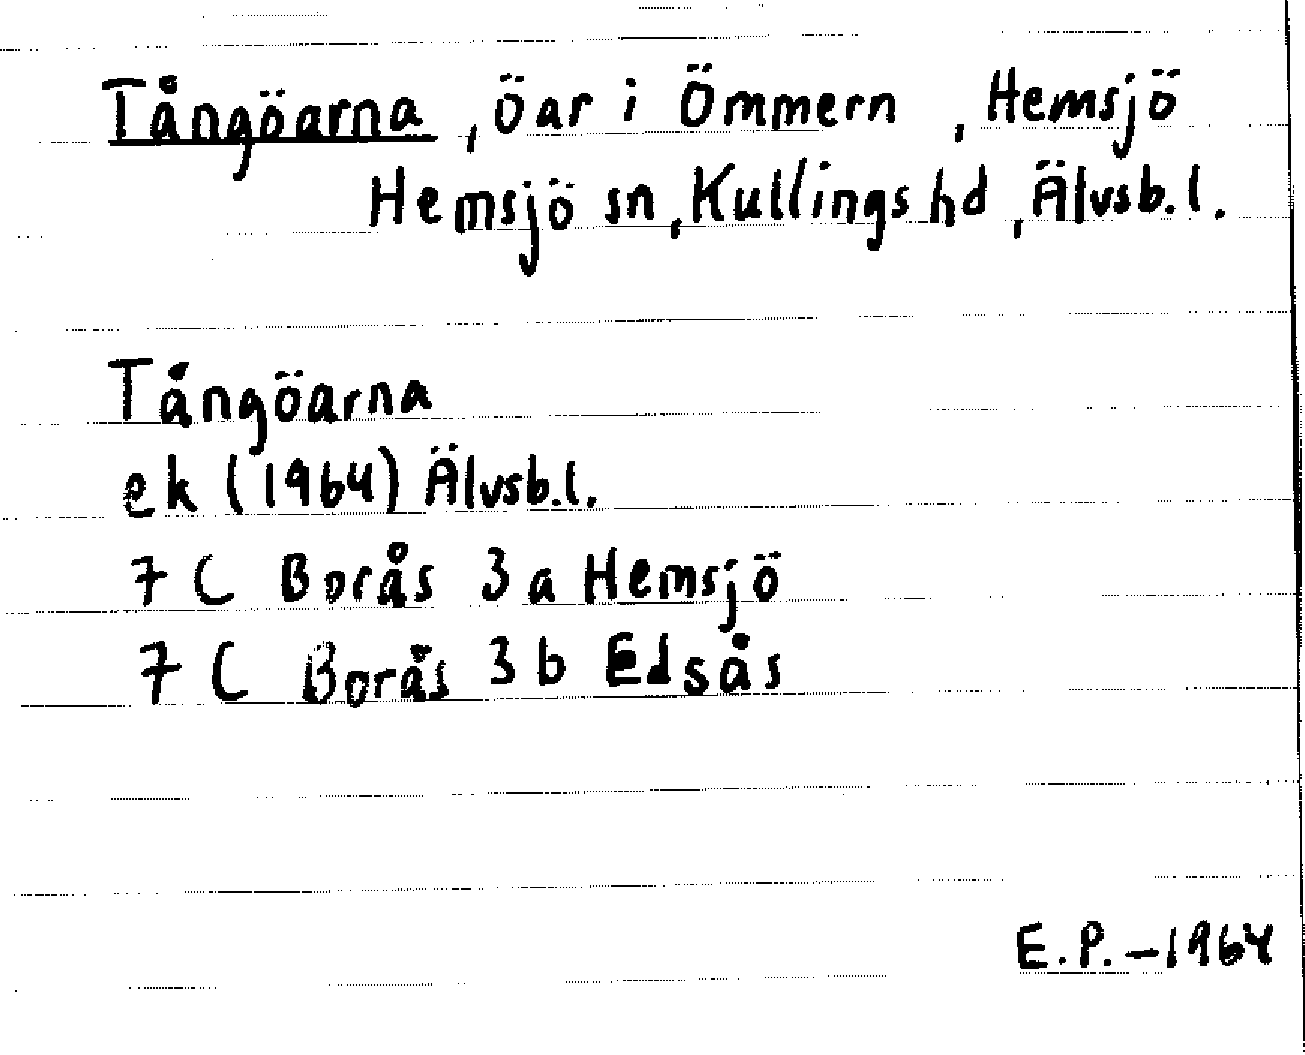 Tångöarna, öar i Ömmern, Hemsjö
Hemsjö sn, Kullings hd, Älvsb.l.
Tångöarna
ek (1964) Älvsb.l.
7 C Borås 3a Hemsjö
7 C Borås 3b Edsås
E.P.-1964